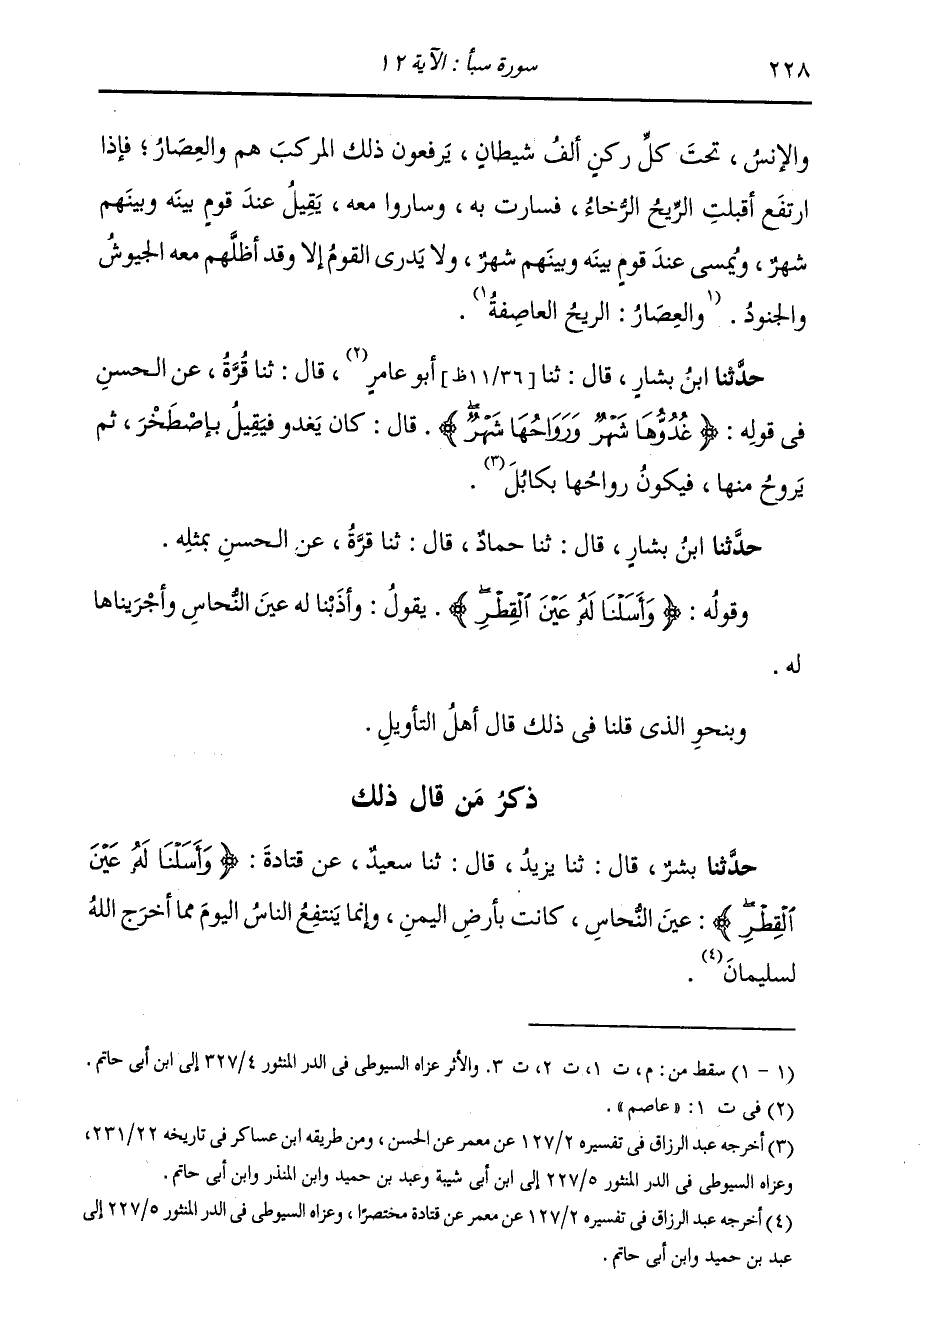 ٢٢٨ سورة سبأ : الآية ١٢
والإنسُ ، تحتَ كلِّ ركنٍ ألفُ شيطانٍ ، يَرفعون ذلك المركبَ هم والعِصَارُ ؛ فإذا
ارتفَع أقبلتِ الرِّيحُ الرُّخاءُ ، فسارت به ، وساروا معه ، يَقِيلُ عندَ قومٍ بينَه وبينَهم
شهرٌ ، ويُمسى عندَ قومٍ بينَه وبينَهم شهرٌ ، ولا يَدرى القومُ إلا وقد أظلَّهم معه الجيوشُ
والجنودُ . (١والعِصَارُ : الريحُ العاصِفةُ١) .
حدَّثنا ابنُ بشارٍ ، قال : ثنا [١١/٣٦ظ] أبو عامرٍ(٢) ، قال : ثنا قُرَّةُ ، عن الحسنِ
فى قولِه : ﴿ غُدُوُّهَا شَهْرٌ وَرَوَاحُهَا شَهْرٌۖ ﴾ . قال : كان يَغدو فيَقِيلُ بإصْطَخْرَ ، ثم
يَروحُ منها ، فيكونُ رواحُها بكابُلَ(٣) .
حدَّثنا ابنُ بشارٍ ، قال : ثنا حمادٌ ، قال : ثنا قرَّةُ ، عن الحسنِ بمثلِه .
وقولُه : ﴿ وَأَسَلْنَا لَهُۥ عَيْنَ ٱلْقِطْرِۖ ﴾ . يقولُ : وأذَبْنا له عينَ النُّحاسِ وأجْرَيناها
له .
وبنحوِ الذى قلنا فى ذلك قال أهلُ التأويلِ .
ذكرُ مَن قال ذلك
حدَّثنا بشرٌ ، قال : ثنا يزيدُ ، قال : ثنا سعيدٌ ، عن قتادةَ : ﴿ وَأَسَلْنَا لَهُۥ عَيْنَ
ٱلْقِطْرِۖ ﴾ : عينَ النُّحاسِ ، كانت بأرضِ اليمنِ ، وإنما يَنتفِعُ الناسُ اليومَ مما أخرَج اللهُ
لسليمانَ(٤) .
(١ - ١) سقط من : م ، ت ١، ت ٢، ت ٣. والأثر عزاه السيوطى فى الدر المنثور ٣٢٧/٤ إلى ابن أبى حاتم .
(٢) فى ت ١: « عاصم» .
(٣) أخرجه عبد الرزاق فى تفسيره ١٢٧/٢ عن معمر عن الحسن ، ومن طريقه ابن عساكر فى تاريخه ٢٣١/٢٢،
وعزاه السيوطى فى الدر المنثور ٢٢٧/٥ إلى ابن أبى شيبة وعبد بن حميد وابن المنذر وابن أبى حاتم .
(٤) أخرجه عبد الرزاق فى تفسيره ١٢٧/٢ عن معمر عن قتادة مختصرًا ، وعزاه السيوطى فى الدر المنثور ٢٢٧/٥ إلى
عبد بن حميد وابن أبى حاتم .